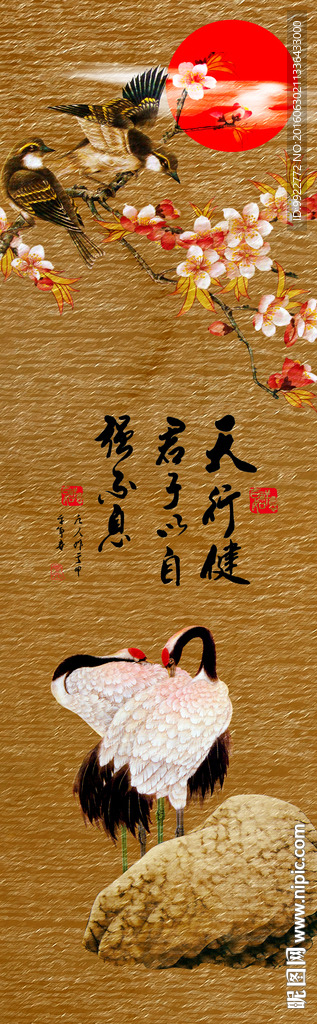 天行健
君子以自
强不息
昵图网 www.nipic.com
ID:9922772 NO:20160630211336433000